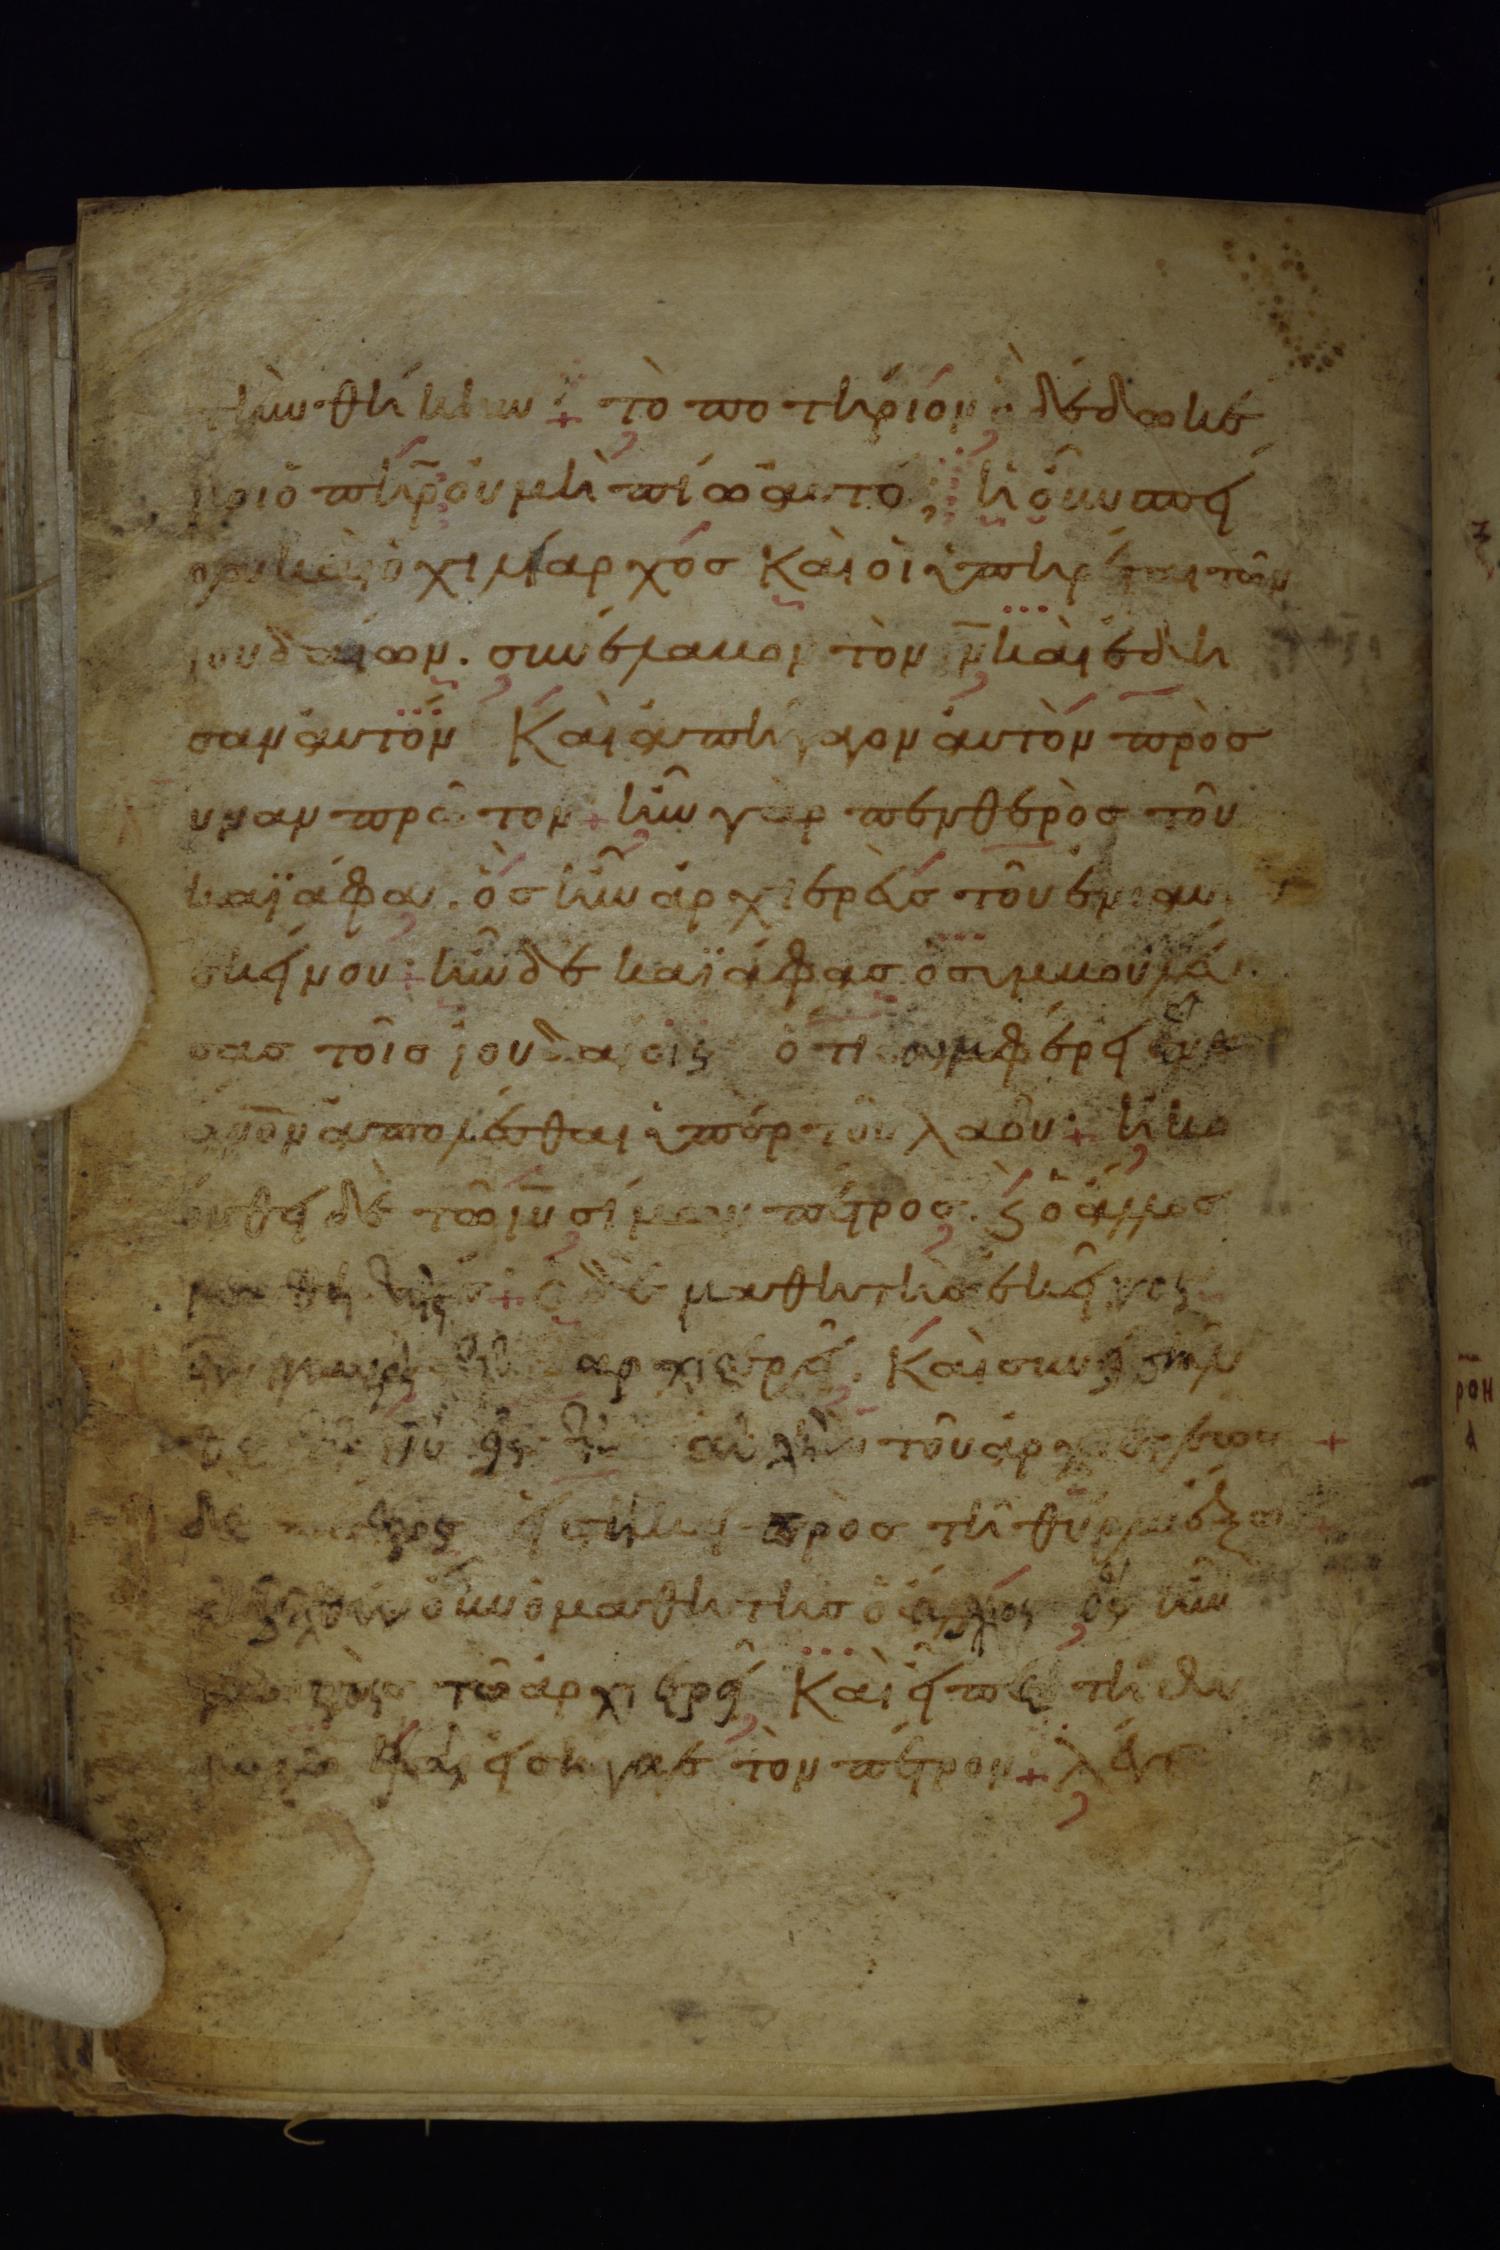 τὴν θήκην + τὸ ποτήριον ὃ δέδωκέ
μοι ὁ πηρ οὐ μὴ πίω αυτό; ἡ οὖν σπεῖ
ρα καὶ ὁ χιλίαρχος Καὶ οἱ ὑπηρέται τῶν
ιουδαίων. συνέλαβον τὸν ιν καὶ ἔδη
σαν αυτόν Καὶ ἀπήγαγον αυτὸν πρὸς
ανναν πρῶτον + ἦν γὰρ πενθερὸς τοῦ
καϊάφα. ὃς ἦν ἀρχιερεὺς τοῦ ἐνιαυ
ἐκείνου + ἦν δὲ καϊάφας ὁ συμβουλεύ
σας τοῖς ἰουδαίοις ὅτι συμφέρει ἕνα
ανον ἀπολέσθαι ὑπὲρ τοῦ λαοῦ + ἠκο
λούθει δὲ τῶ ιυ σίμων πέτρος. ϗ ὁ ἄλλος
μαθητής + ὁ δὲ μαθητὴς ἐκεῖνος
ἦν γνωστὸς τῶ ἀρχιερεῖ. Καὶ συνεισῆλ
θε τῶ ιυ εἰς τὴν αὐλὴν τοῦ ἀρχιερέως +
δὲ πέτρος εἱστήκει πρὸς τῆ θύρα ἔξω
ἐξῆλθεν οὖν ὁ μαθητης ὁ ἄλλος ὃς ἦν
γνωστὸς τῶ ἀρχιερεῖ Καὶ εἶπε τῆ θυ
ρωρῶ καὶ εἰσήγαγε τὸν πέτρον + λέγει